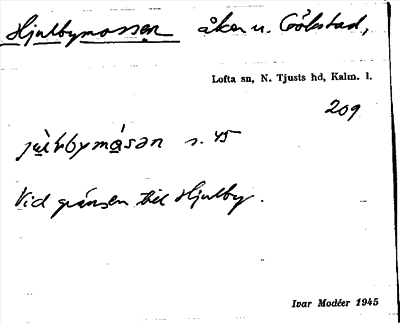 Hjulbymossen åker u. Gölstad,
Lofta sn, N. Tjusts hd, Kalm. l.
209
s. 45
Vid gränsen till Hjulby.
Ivar Modéer 1945